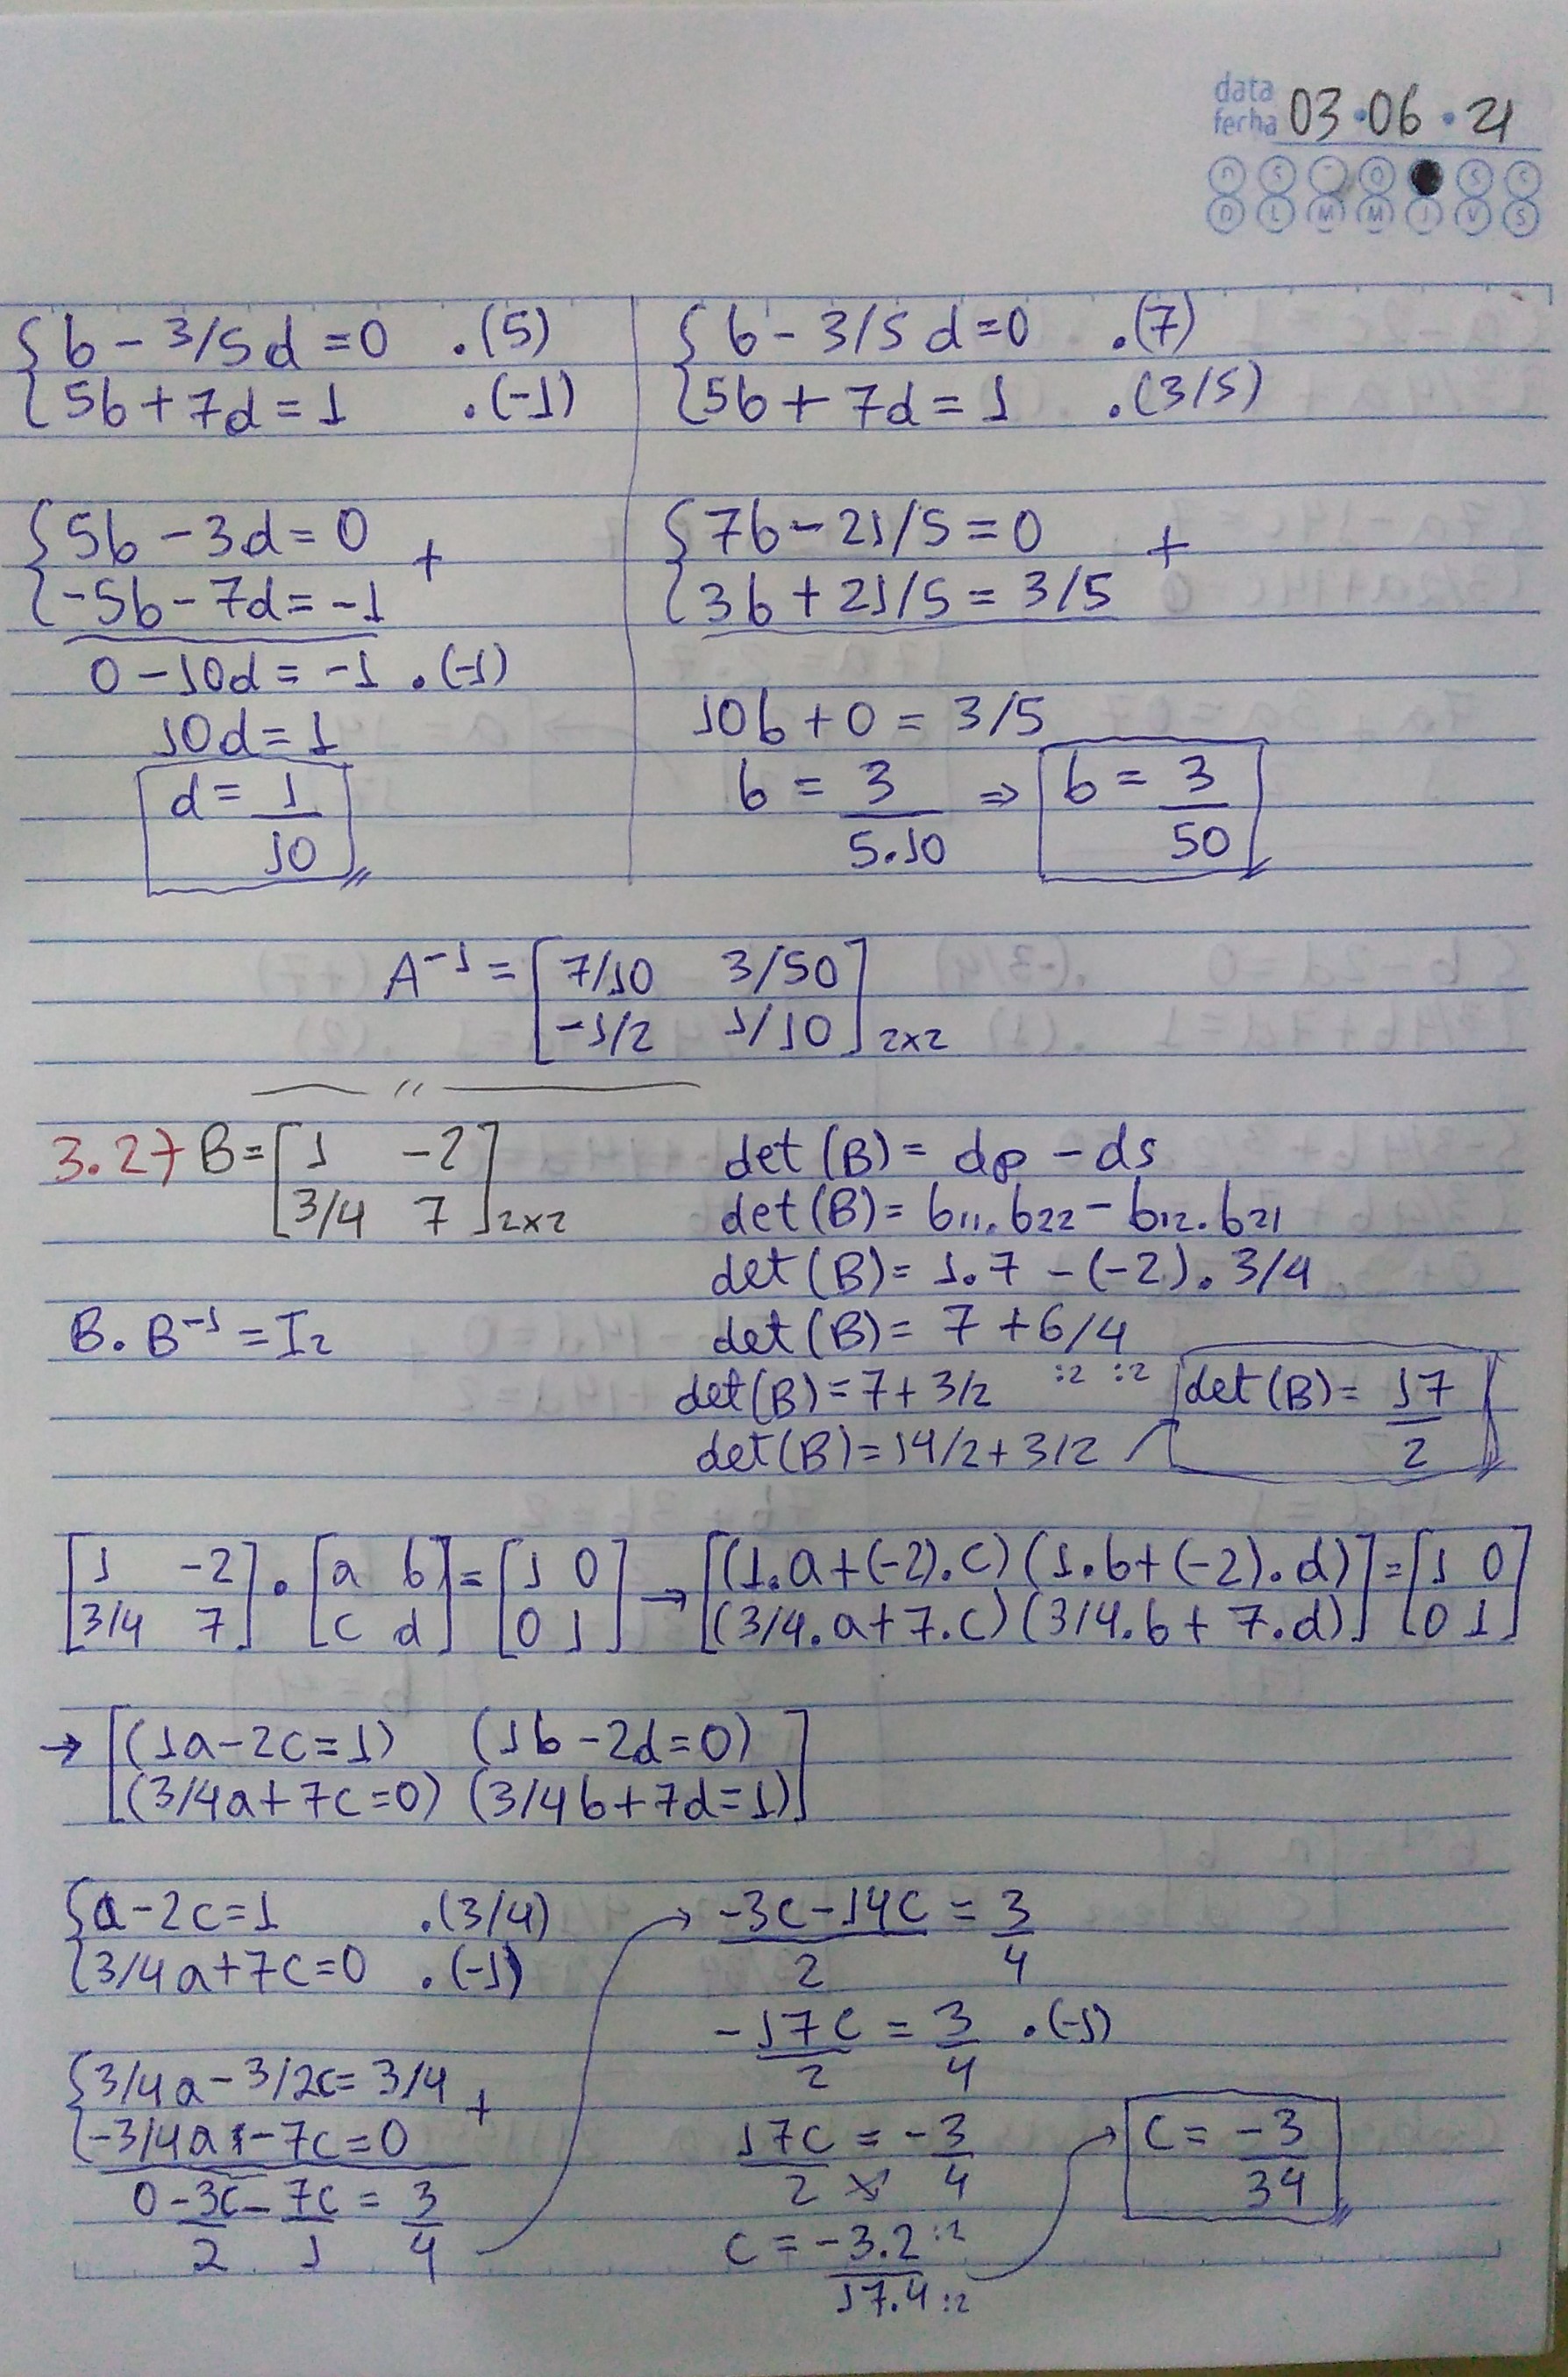 data
fecha 03 06 21
D S T Q S S
D L M M J V S
{ b - 3/5d = 0 .(5)
{ 5b + 7d = 1 .(-1)
{ 5b - 3d = 0 +
{ -5b - 7d = -1
0 - 10d = -1 .(-1)
10d = 1
d = 1/10
{ b - 3/5d = 0 .(7)
{ 5b + 7d = 1 .(3/5)
{ 7b - 21/5 = 0 +
{ 3b + 21/5 = 3/5
10b + 0 = 3/5
b = 3/5.10 ⇒ b = 3/50
A⁻¹ = [ 7/10 3/50
-1/2 1/10 ] 2x2
3.2) B = [ 1 -2
3/4 7 ] 2x2
B. B⁻¹ = I2
det (B) = dp - ds
det (B) = b11.b22 - b12.b21
det (B) = 1.7 - (-2). 3/4
det (B) = 7 + 6/4
:2 :2
det (B) = 7 + 3/2
det (B) = 14/2 + 3/2
det (B) = 17/2
[ 1 -2 ] . [ a b ] = [ 1 0 ] → [ (1.a+(-2).c) (1.b+(-2).d) ] = [ 1 0 ]
[ 3/4 7 ] [ c d ] [ 0 1 ] [ (3/4.a+7.c) (3/4.b+7.d) ] [ 0 1 ]
→ [ (1a-2c=1) (1b-2d=0)
(3/4a+7c=0) (3/4b+7d=1) ]
{ a - 2c = 1 .(3/4)
{ 3/4a + 7c = 0 .(-1)
{ 3/4a - 3/2c = 3/4 +
{ -3/4a - 7c = 0
0 - 3c/2 - 7c/1 = 3/4
-3c-14c/2 = 3/4
-17c/2 = 3/4 .(-1)
17c/2 = -3/4
c = -3.2 :2/17.4 :2
c = -3/34